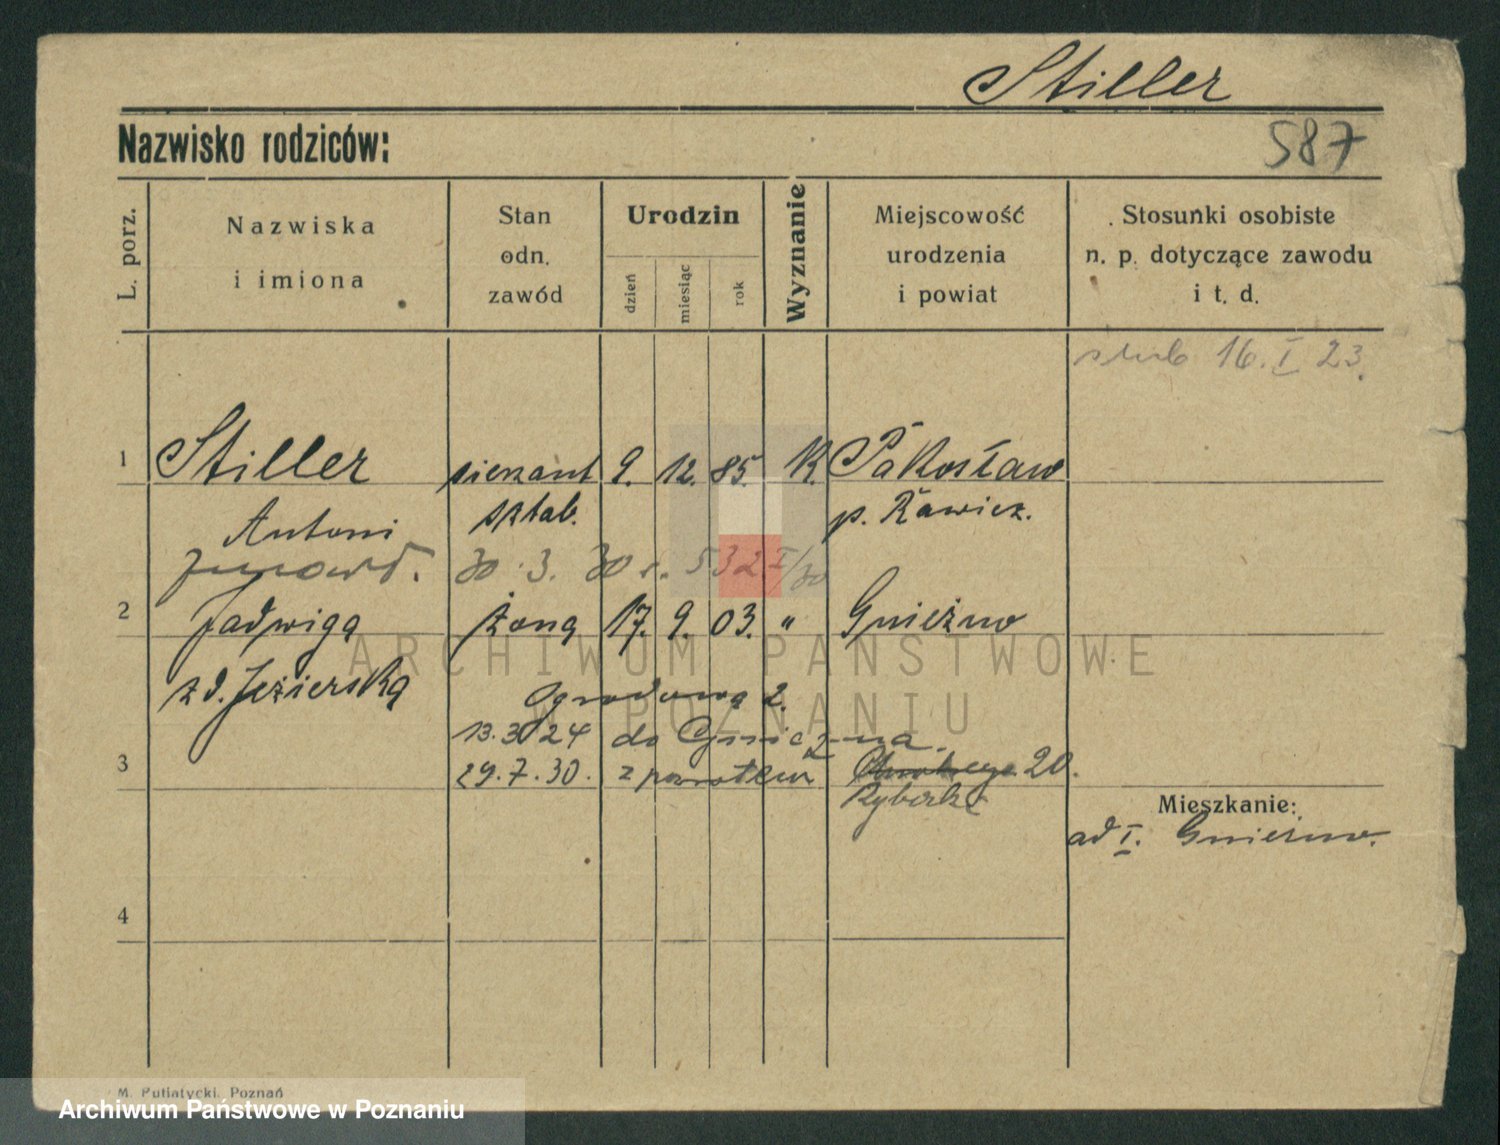 Stiller
Nazwisko rodziców:
587
L. porz.
Nazwiska
i imiona
Stan
odn.
zawód
Urodzin
dzień
miesiąc
rok
Wyznanie
Miejscowość
urodzenia
i powiat
Stosunki osobiste
n. p. dotyczące zawodu
i t. d.
ślub 16. I 23.
1 Stiller sierżant 9. 12. 85. K. Pakosław
Antoni sztab. p. Rawicz.
30. 3. 30 r. 532 I/30
2 Jadwiga żona 17. 9. 03. " Gniezno
z d. Jezierska
Ogrodowa 2.
13.3 24 do Gniezna.
3 29.7.30. z powrotem 20.
Rybacka
Mieszkanie:
ad I. Gniezno.
4
M. Putiatycki, Poznań
ARCHIWUM PAŃSTWOWE
W POZNANIU
Archiwum Państwowe w Poznaniu